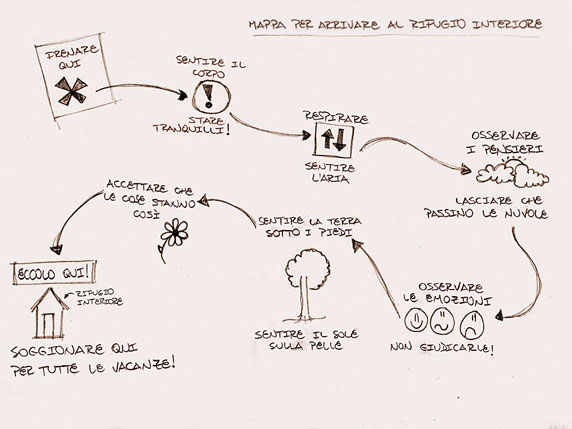 MAPPA PER ARRIVARE AL RIFUGIO INTERIORE
FRENARE
QUI
SENTIRE IL
CORPO
!
STARE
TRANQUILLI!
RESPIRARE
SENTIRE
L'ARIA
OSSERVARE
I PENSIERI
LASCIARE CHE
PASSINO LE NUVOLE
OSSERVARE
LE EMOZIONI
NON GIUDICARLE!
SENTIRE LA TERRA
SOTTO I PIEDI
SENTIRE IL SOLE
SULLA PELLE
ACCETTARE CHE
LE COSE STANNO
COSÌ
ECCOLO QUI!
RIFUGIO
INTERIORE
SOGGIONARE QUI
PER TUTTE LE VACANZE!